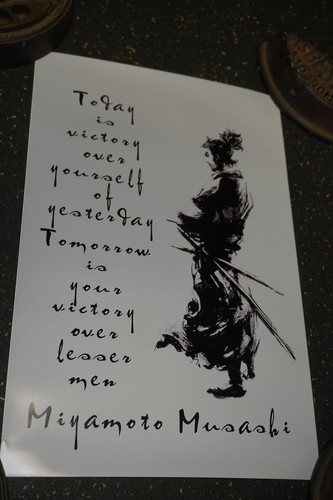 Today
is
victory
over
yourself
of
yesterday
Tomorrow
is
your
victory
over
lesser
men
Miyamoto Musashi